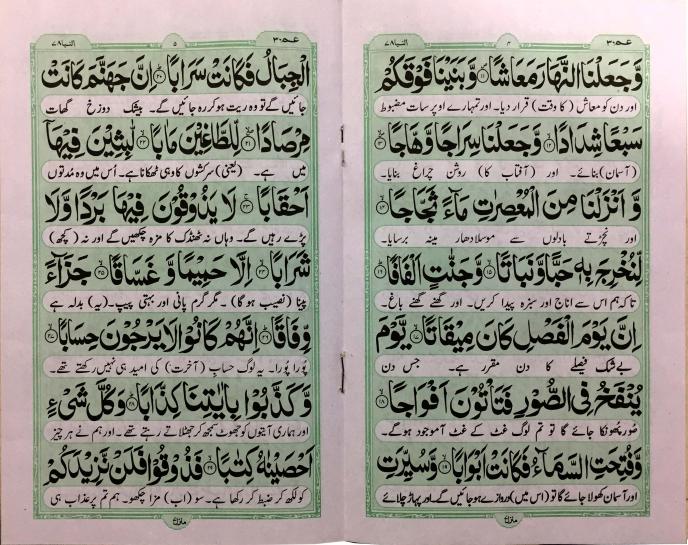 عمّ ٣٠
٤
النبا ٧٨
وَّ جَعَلْنَا النَّهَارَ مَعَاشًا ۪﴿۱۱﴾ وَّ بَنَيْنَا فَوْقَكُمْ
اور دن کو معاش (کا وقت) قرار دیا۔ اور تمہارے اوپر سات مضبوط
سَبْعًا شِدَادًا ﴿ۙ۱۲﴾ وَّ جَعَلْنَا سِرَاجًا وَّهَّاجًا ﴿۪ۙ۱۳﴾
(آسمان) بنائے۔ اور (آفتاب کا) روشن چراغ بنایا۔
وَّ اَنْزَلْنَا مِنَ الْمُعْصِرٰتِ مَآءً ثَجَّاجًا ﴿ۙ۱۴﴾
اور نچڑتے بادلوں سے موسلا دھار مینہ برسایا۔
لِّنُخْرِجَ بِهٖ حَبًّا وَّ نَبَاتًا ﴿ۙ۱۵﴾ وَّ جَنّٰتٍ اَلْفَافًا ﴿ؕ۱۶﴾
تاکہ ہم اس سے اناج اور سبزہ پیدا کریں۔ اور گھنے گھنے باغ۔
اِنَّ يَوْمَ الْفَصْلِ كَانَ مِيْقَاتًا ﴿ۙ۱۷﴾ يَّوْمَ
بے شک فیصلے کا دن مقرر ہے۔ جس دن
يُنْفَخُ فِي الصُّوْرِ فَتَاْتُوْنَ اَفْوَاجًا ﴿ۙ۱۸﴾
صور پھونکا جائے گا تو تم لوگ غٹ کے غٹ آ موجود ہو گے۔
وَّ فُتِحَتِ السَّمَآءُ فَكَانَتْ اَبْوَابًا ﴿ۙ۱۹﴾ وَّ سُيِّرَتِ
اور آسمان کھولا جائے گا تو (اس میں) دروازے ہو جائیں گے۔ اور پہاڑ چلائے
منزل
عمّ ٣٠
٥
النبا ٧٨
الْجِبَالُ فَكَانَتْ سَرَابًا ﴿ؕ۲۰﴾ اِنَّ جَهَنَّمَ كَانَتْ
جائیں گے تو وہ ریت ہو کر رہ جائیں گے۔ بیشک دوزخ گھات
مِرْصَادًا ﴿۪ۙ۲۱﴾ لِّلطَّاغِيْنَ مَاٰبًا ﴿ۙ۲۲﴾ لّٰبِثِيْنَ فِيْهَاۤ
میں ہے۔ (یعنی) سرکشوں کا وہی ٹھکانا ہے۔ اُس میں وہ مُدتوں
اَحْقَابًا ﴿ۚ۲۳﴾ لَا يَذُوْقُوْنَ فِيْهَا بَرْدًا وَّ لَا
پڑے رہیں گے۔ وہاں نہ ٹھنڈک کا مزہ چکھیں گے اور نہ (کچھ)
شَرَابًا ﴿ۙ۲۴﴾ اِلَّا حَمِيْمًا وَّ غَسَّاقًا ﴿ۙ۲۵﴾ جَزَآءً
پینا (نصیب ہو گا)۔ مگر گرم پانی اور بہتی پیپ۔ (یہ) بدلہ ہے
وِّفَاقًا ﴿ؕ۲۶﴾ اِنَّهُمْ كَانُوْا لَا يَرْجُوْنَ حِسَابًا ﴿ۙ۲۷﴾
پُورا پُورا۔ یہ لوگ حساب (آخرت) کی امید ہی نہیں رکھتے تھے۔
وَّ كَذَّبُوْا بِاٰيٰتِنَا كِذَّابًا ﴿ؕ۲۸﴾ وَ كُلَّ شَيْءٍ
اور ہماری آیتوں کو جھوٹ سمجھ کر جھٹلاتے رہتے تھے۔ اور ہم نے ہر چیز
اَحْصَيْنٰهُ كِتٰبًا ﴿ۙ۲۹﴾ فَذُوْقُوْا فَلَنْ نَّزِيْدَكُمْ
کو لکھ کر ضبط کر رکھا ہے۔ سو (اب) مزا چکھو۔ ہم تم پر عذاب ہی
منزل